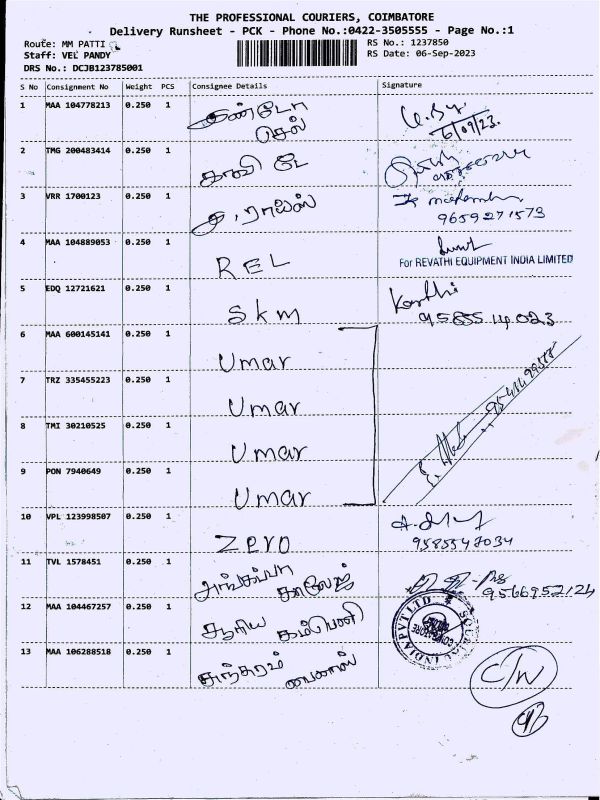 THE PROFESSIONAL COURIERS, COIMBATORE
Delivery Runsheet - PCK - Phone No.:0422-3505555 - Page No.:1
Route: MM PATTI
RS No.: 1237850
Staff: VEL PANDY
RS Date: 06-Sep-2023
DRS No.: DCJB123785001
S No Consignment No Weight PCS Consignee Details Signature
1 MAA 104778213 0.250 1
செல் 6/09/23.
2 TMG 200483414 0.250 1
3 VRR 1700123 0.250 1
9659271573
4 MAA 104889053 0.250 1 REL
For REVATHI EQUIPMENT INDIA LIMITED
5 EDQ 12721621 0.250 1 SKM Karthi
6 MAA 600145141 0.250 1 Umar
7 TRZ 335455223 0.250 1 Umar
8 TMI 30210525 0.250 1 Umar
9 PON 7940649 0.250 1 Umar
10 VPL 123998507 0.250 1 ZERO
9585547034
11 TVL 1578451 0.250 1
9566952124
12 MAA 104467257 0.250 1 கம்பெனி
13 MAA 106288518 0.250 1
C/W